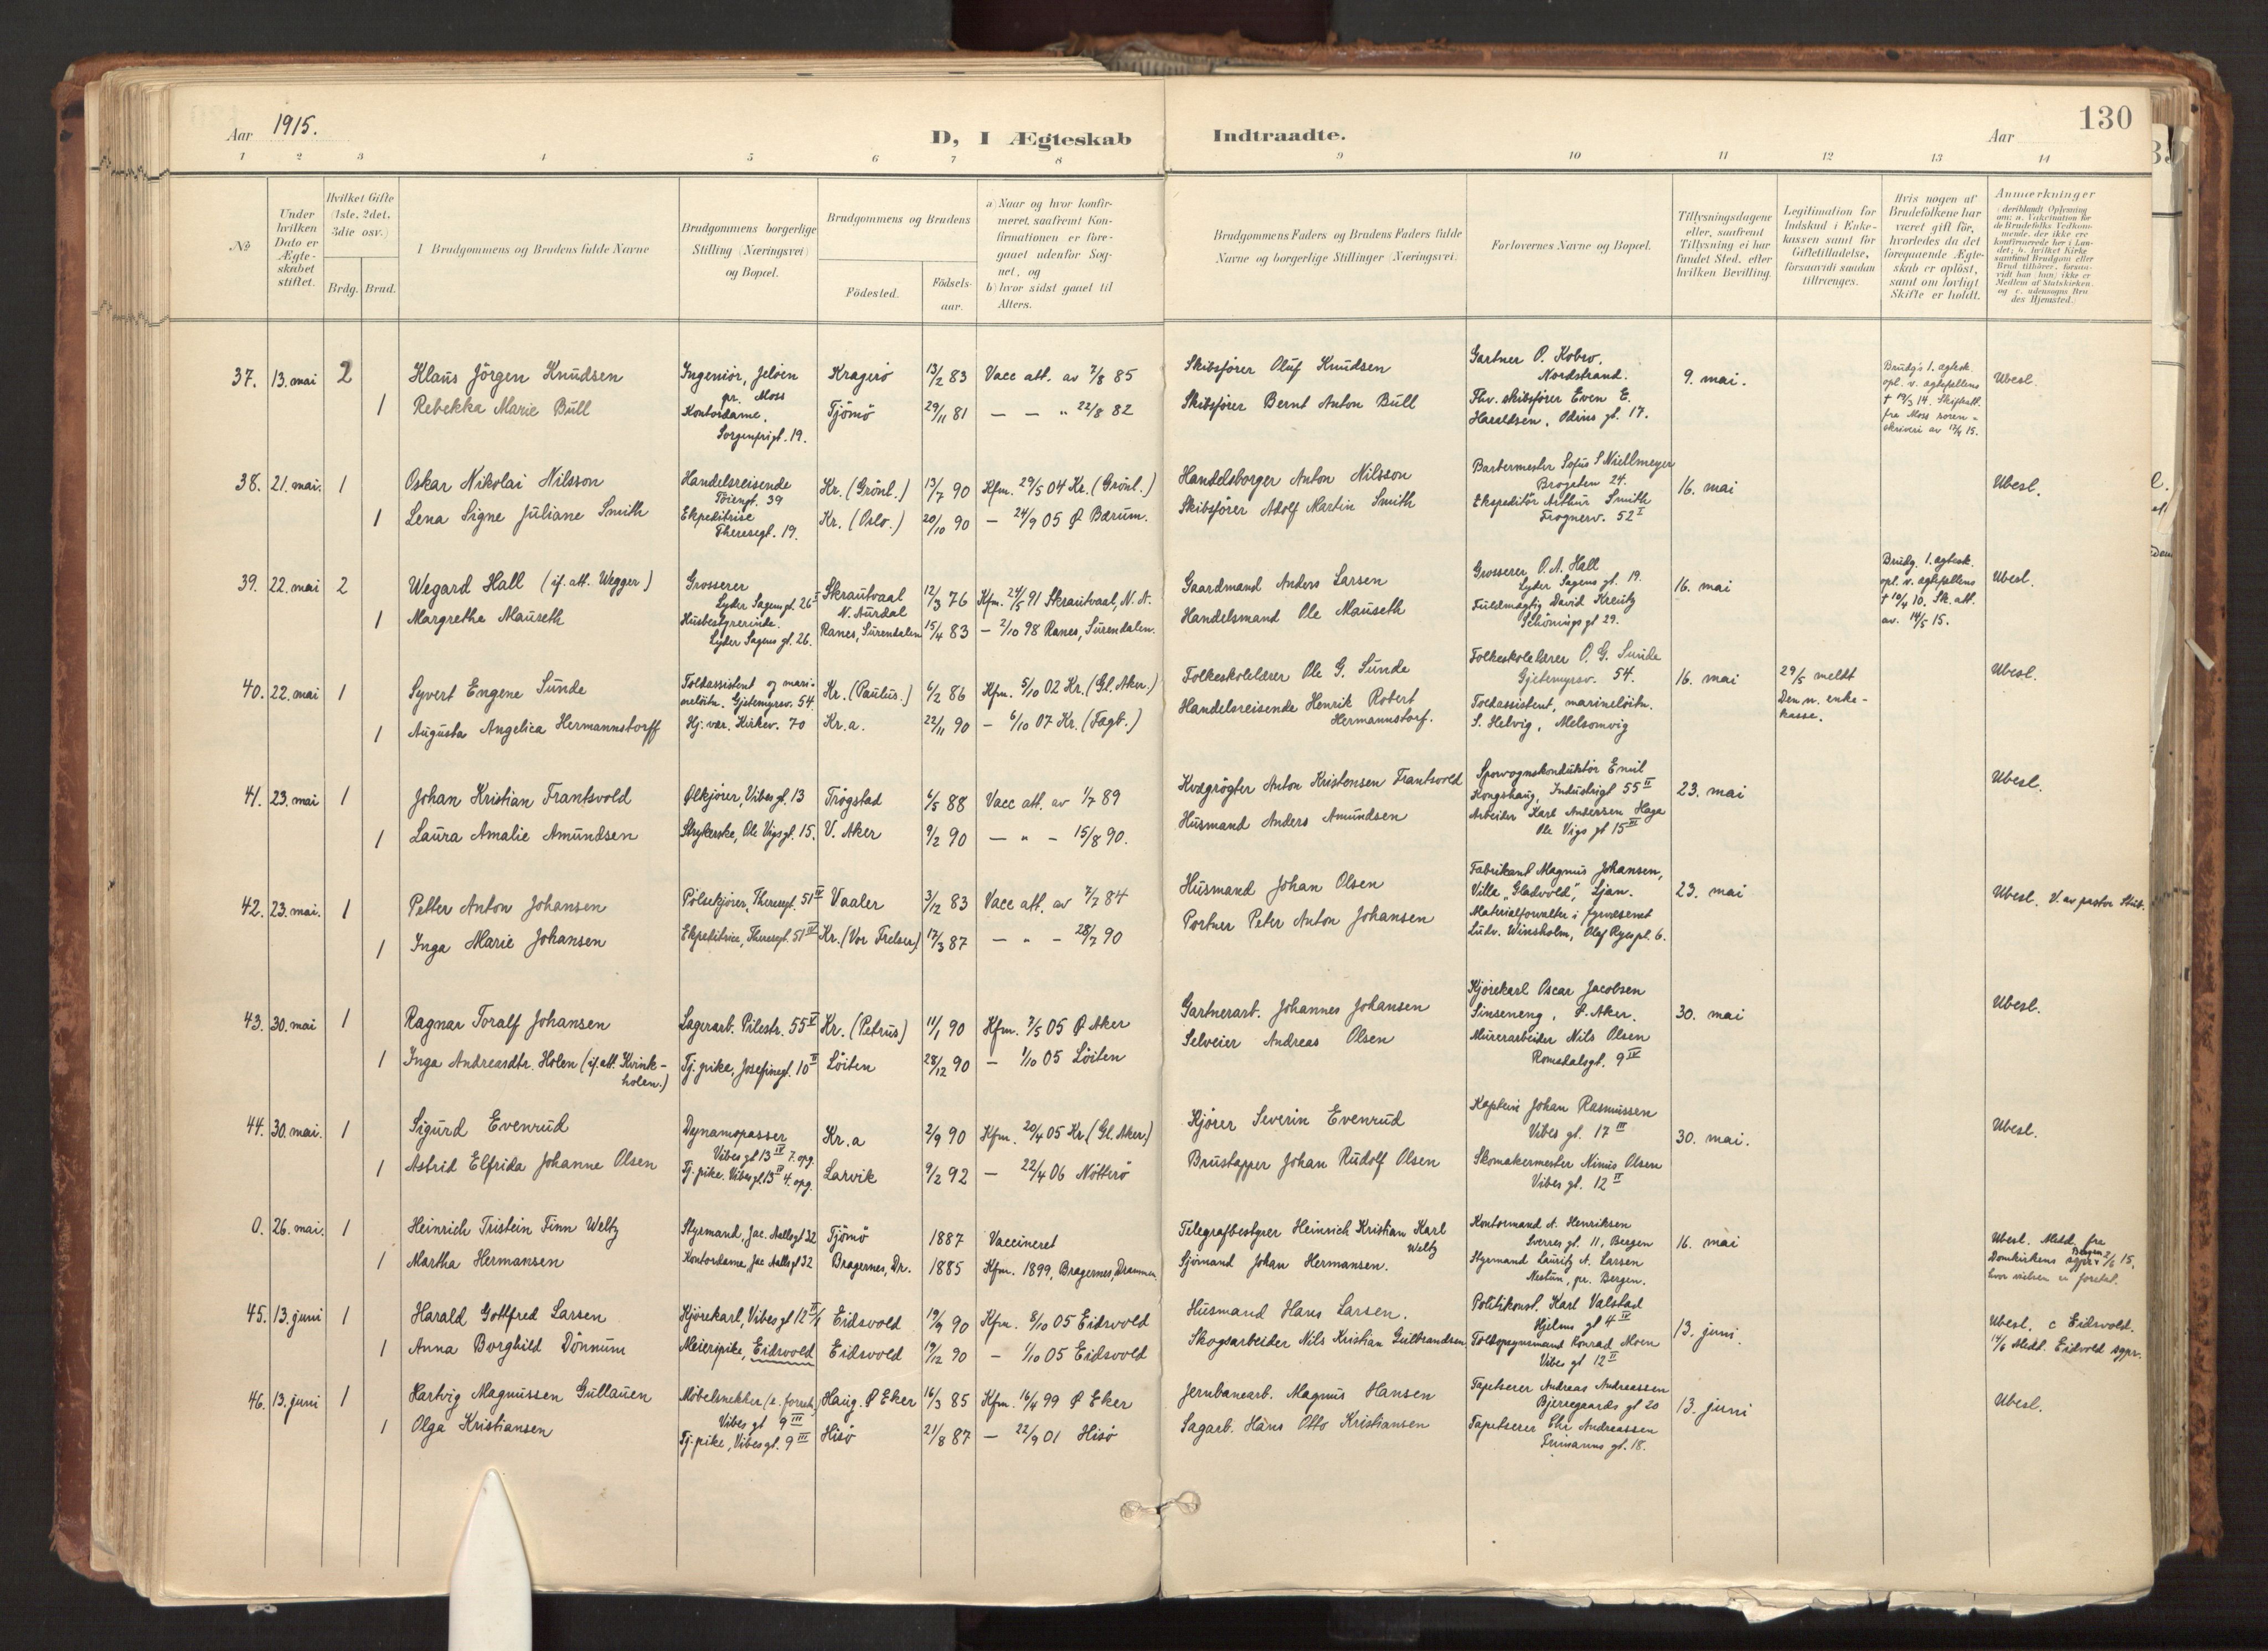 130
Aar 1915.
D, I Ægteskab Indtraadte.
Aar
1 2 3 4 5 6 7 8 9 10 11 12 13 14
No
Under hvilken Dato er Ægteskabet stiftet.
Hvilket Gifte (1ste, 2det, 3die osv.)
Brdg. Brud.
Brudgommens og Brudens fulde Navne
Brudgommens borgerlige Stilling (Næringsvei) og Bopæl.
Brudgommens og Brudens
Födested.
Födselsaar.
a) Naar og hvor konfirmeret, saafremt Konfirmationen er foregaaet udenfor Sognet, og
b) hvor sidst gaaet til Alters.
Brudgommens Faders og Brudens Faders fulde Navne og borgerlige Stillinger (Næringsvei)
Forlovernes Navne og Bopæl.
Tillysningsdagene eller, saafremt Tillysning ei har fundet Sted, efter hvilken Bevilling.
Legitimation for Indskud i Enkekassen samt for Giftetilladelse, forsaavidt saadan tiltrænges.
Hvis nogen af Brudefolkene har været gift för, hvorledes da det foregaaende Ægteskab er oplöst, samt om lovligt Skifte er holdt.
Anmærkninger
37. 13. mai 2 Klaus Jörgen Knudsen Ingeniör, Jelöen pr. Moss Kragerö 13/2 83 Vacc att. av 7/8 85 Skibsförer Oluf Knudsen Gartner O. Kobro. Nordstrand. 9. mai. Brudg's 1. egtesk. opl. v. egtefellens † 19/3 14. Skifteatt. fra Moss soren-skriveri av 17/4 15. Ubesl.
1 Rebekka Marie Bull Kontordame. Sorgenfrigt. 19. Tjömö 29/11 81 — — " 22/8 82 Skibsförer Bernt Anton Bull Fhv. skibsförer Even E. Haraldsen, Odins gt. 17.
38. 21. mai. 1 Oskar Nikolai Nilsson Handelsreisende Töiengt. 39 Kr. (Grönl.) 13/7 90 Kfm. 29/5 04 Kr. (Grönl.) Handelsborger Anton Nilsson Barbermester Sofus S Niellmeyer Brogaten 24. 16. mai Ubesl.
1 Lena Signe Juliane Smith Ekpeditrise Theresegt. 19. Kr. (Oslo.) 20/10 90 — 24/9 05 Ø Bærum. Skibsförer Adolf Martin Smith Ekspeditör Arthur Smith Frognerv. 52 I
39. 22. mai 2 Wegard Hall (if. att. Wegger) Grosserer Lyder Sagens gt. 26 I Skrautvaal N. Aurdal 12/3 76 Kfm. 24/5 91 Skrautvaal, N. A. Gaardmand Anders Larsen Grosserer O. A. Hall Lyder Sagens gt. 19. 16. mai Brudg. 1. egtesk. opl. v. egtefellens † 10/4 10. Sk. att. av. 14/5 15. Ubesl.
1 Margrethe Mauseth Husbestyrerinde. Lyder Sagens gt. 26. Ranes, Surendalen 15/4 83 — 2/10 98 Ranes, Surendalen. Handelsmand Ole Mauseth Fuldmægtig David Kreutz Schönings gt 29.
40. 22. mai 1 Syvert Engene Sunde Toldassistent og marinelöitn. Gjetemyrsv. 54. Kr. (Paulus.) 6/2 86 Kfm. 5/10 02 Kr. (Gl. Aker.) Folkeskolelærer Ole G. Sunde Folkeskolelærer O. G. Sunde Gjetemyrsv. 54. 16. mai 29/5 meldt Den n. enke-kasse. Ubesl.
1 Augusta Angelica Hermannstorff Hj. vær. Kirkev. 70 Kr.a. 22/11 90 — 6/10 07 Kr. (Fagb.) Handelsreisende Henrik Robert Hermannstorf. Toldassistent, marinelöitn. S. Helvig, Melsomvig
41. 23. mai 1 Johan Kristian Frantsvold Ølkjörer, Vibes gt. 13 Trögstad 6/5 88 Vacc att. av 1/7 89 Kvægrögter Anton Kristensen Frantsvold Sporvognskonduktör Emil Kongshaug, Industrigt 55 II 23. mai Ubesl.
1 Laura Amalie Amundsen Strykerske, Ole Vigs gt. 15. V. Aker 9/2 90 — " — 15/8 90. Husmand Anders Amundsen Arbeider Karl Andersen Haga Ole Vigs gt 15 III
42. 23. mai. 1 Petter Anton Johansen Pölsekjörer, Theresegt. 51 IV Vaaler 3/12 83 Vacc att. av 7/7 84 Husmand Johan Olsen Fabrikant Magnus Johansen, Villa "Gladvold", Ljan. 23. mai Ubesl. V. av pastor Stub.
1 Inga Marie Johansen Ekpeditrice, Theresegt. 51 IV Kr. (Vor Frelser) 17/3 87 — " — 28/7 90 Portner Peter Anton Johansen Materialforvalter i fyrvæsenet Ludv. Winsholm, Olaf Ryes pl. 6.
43. 30. mai 1 Ragnar Toralf Johansen Lagerarb. Pilestr. 55 V Kr. (Petrus) 11/1 90 Kfm. 7/5 05 Ø Aker Gartnerarb. Johannes Johansen Kjörekarl Oscar Jacobsen Sinseneng, Ø. Aker. 30. mai Ubesl.
1 Inga Andreasdtr. Holen (if. att. Kvink-holen.) Tj. pike, Josefinegt. 10 II Löiten 28/12 90 — 1/10 05 Löiten Selveier Andreas Olsen Murerarbeider Nils Olsen Romsdalsgt. 9 IV
44. 30. mai. 1 Sigurd Evenrud Dynamopasser Vibes gt 13 IV 7. opg. Kr.a 2/9 90 Kfm. 20/4 05 Kr. (Gl. Aker.) Kjörer Severin Evenrud Kaptein Johan Rasmussen Vibes gt. 17 III 30. mai. Ubesl.
1 Astrid Elfrida Johanne Olsen Tj. pike. Vibes gt. 13 II 4. opg. Larvik 9/2 92 — 22/4 06 Nötterö Brustapper Johan Rudolf Olsen Skomakermester Nimis Olsen Vibes gt. 12 II
0. 26. mai. 1 Heinrich Tristein Finn Weltz Styrmand, Jac. Aalls gt 32 Tjömö 1887 Vaccineret Telegrafbestyrer Heinrich Kristian Karl Weltz Kontormand A. Henriksen Sverres gt. 11, Bergen 16. mai Ubesl. Medd. fra Domkirkens sgpr. Bergen 2/6 15, hvor vielsen er foretat.
1 Martha Hermansen Kontordame Jac Aalls gt 32 Bragernes, Dr. 1885 Kfm. 1899, Bragernes, Drammen. Sjömand Johan Hermansen. Styrmand Lauritz A. Larsen Nestun, pr. Bergen.
45. 13. juni 1 Harald Gottfred Larsen Kjörekarl, Vibes gt 12 II/1 Eidsvold 19/9 90 Kfm. 8/10 05 Eidsvold Husmand Hans Larsen. Politikonst. Karl Valstad Hjelms gt 4 IV 13. juni. Ubesl. c Eidsvold.
1 Anna Borghild Dönnum Meieripike, Eidsvold Eidsvold 19/12 90 — 1/10 05 Eidsvold Skogsarbeider Nils Kristian Gulbrandsen Toldopsynsmand Konrad Moen Vibes gt 12 II 14/6 Medd. Eidsvold sgpr.
46. 13. juni 1 Hartvig Magnussen Gullauen Möbelsnekker (e. forretn.) Vibes gt 9 III Haug. Ø Eker 16/3 85 Kfm. 16/4 99 Ø Eker Jernbanearb. Magnus Hansen Tapetserer Andreas Andreassen Bjerregaards gt 20 13. juni Ubesl.
1 Olga Kristiansen Tj. pike, Vibes gt. 9 III Hisö 21/8 87 — 22/9 01 Hisö Sagarb. Hans Otto Kristiansen Tapetserer Chr Andreassen Frimanns gt. 18.